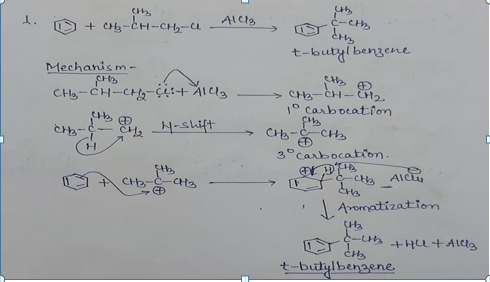 1. + CH3-CH-CH2-Cl AlCl3 C-CH3
CH3 CH3 CH3
t-butylbenzene
Mechanism-
CH3
CH3-CH-CH2-Cl: + AlCl3 CH3-CH-CH2
CH3 ⊕
1° Carbocation
CH3 ⊕ CH3
CH3-C-CH2 H-shift CH3-C-CH3
H ⊕
3° Carbocation.
CH3 ⊕ H CH3
+ CH3-C-CH3 C-CH3 AlCl4
⊕ CH3
Aromatization
CH3
C-CH3 + HCl + AlCl3
CH3
t-butylbenzene